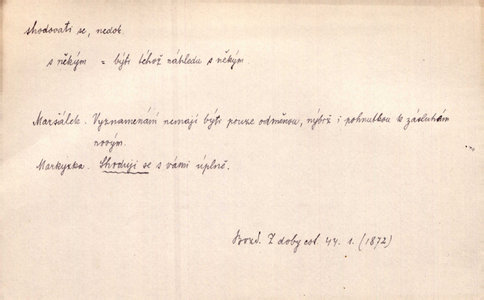 shodovati se, nedok.
s někým = býti téhož náhledu s někým
Maršálek. Vyznamenání nemají býti pouze odměnou, nýbrž i pohnutkou k zásluhám
novým.
Markyzka. Shoduji se s vámi úplně.
Bozd. Z doby cot. 44. 1. (1872)